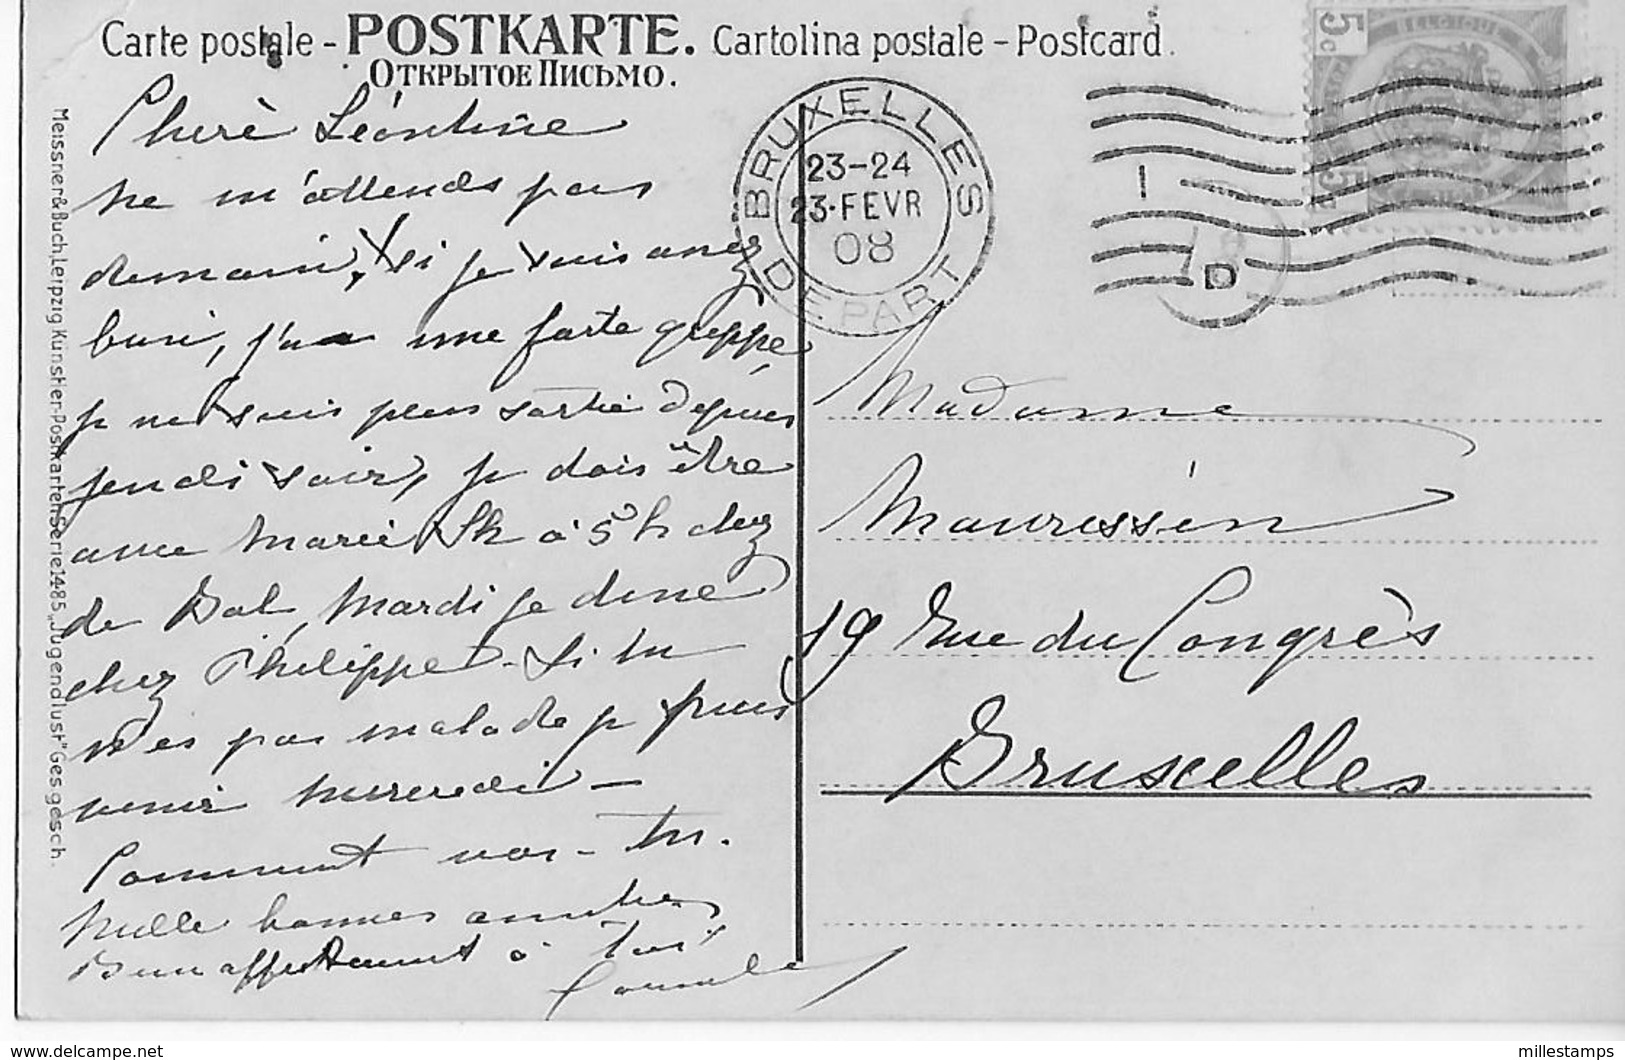 Carte postale - POSTKARTE. Cartolina postale - Postcard.
Открытое Письмо.
Meissner & Buch, Leipzig Künstler-Postkarten Serie 1485 „Jugendlust" Ges. gesch.
BRUXELLES
23-24
23·FEVR
08
DEPART
5c
BELGIQUE
1
D
Chère Léontine
ne m'attends pas
demain, si je suis assez
bien, j'ai une forte grippe
je ne suis plus sortie depuis
jeudi soir, je dois être
avec Marie Sk à 5 h chez
de Bal, Mardi je dîne
chez Philippe. Si tu
n'es pas malade je puis
venir mercredi —
Comment vas-tu.
Mille bonnes amitiés
Bien affectueusement à toi
Madame
Mauressin
19 Rue du Congrès
Bruxelles
© delcampe.net
millestamps